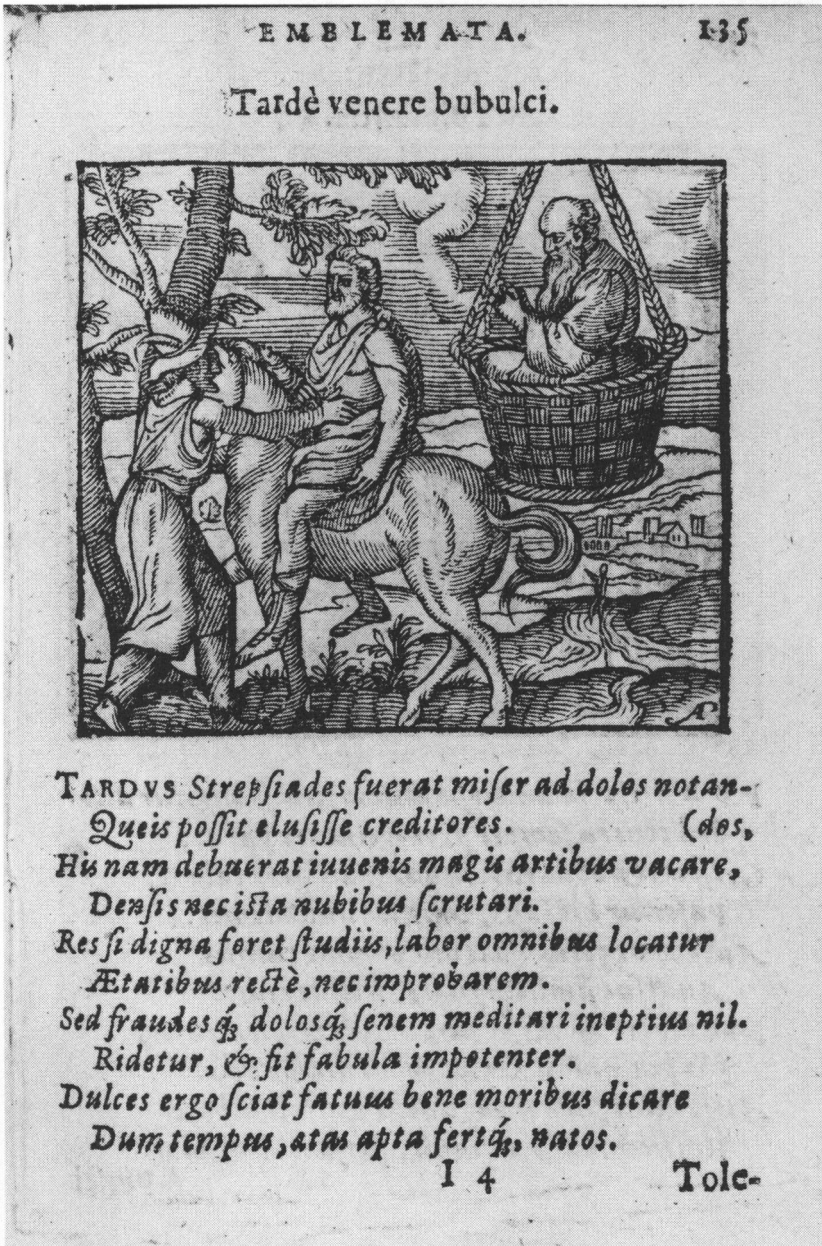 EMBLEMATA. 135
Tardè venere bubulci.
TARDVS Strepſiades fuerat miſer ad dolos notan-
Queis poſſit eluſiſſe creditores. (dos,
His nam debuerat iuuenis magis artibus vacare,
Denſis nec iſta nubibus ſcrutari.
Res ſi digna foret ſtudiis, labor omnibus locatur
Ætatibus rectè, nec improbarem.
Sed fraudesq́; dolosq́; ſenem meditari ineptius nil.
Ridetur, & fit fabula impotenter.
Dulces ergo ſciat fatuus bene moribus dicare
Dum tempus, ætas apta fertq́;, natos.
I 4 Tole-